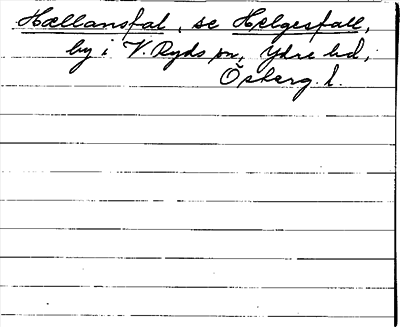 Hællansfal, se Helgesfall,
by i V. Ryds sn, Ydre hd,
Österg. l.